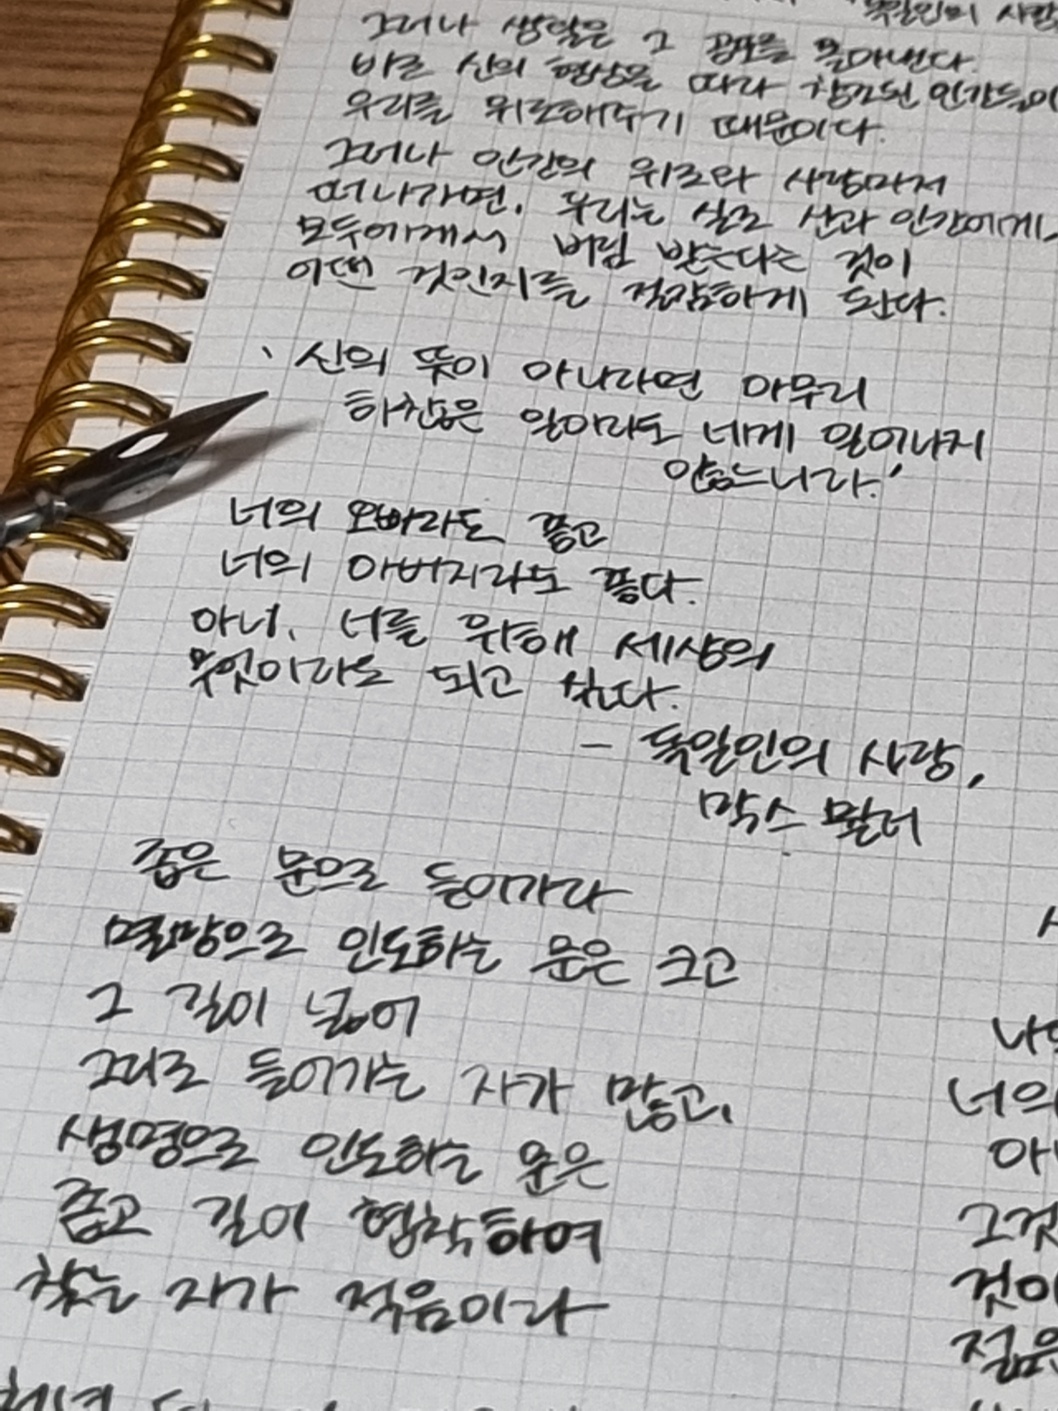 독일인의 사랑
그러나 생활은 그 공포를 몰아낸다.
바로 신의 형상을 따라 창조된 인간들이
우리를 위로해주기 때문이다.
그러나 인간의 위로와 사랑마저
떠나가면, 우리는 실로 신과 인간에게,
모두에게서 버림 받는다는 것이
어떤 것인지를 직감하게 된다.
' 신의 뜻이 아니라면 아무리
하찮은 일이라도 네게 일어나지
않느니라.'
너의 오빠라도 좋고
너의 아버지라도 좋다.
아니, 너를 위해 세상의
무엇이라도 되고 싶다.
- 독일인의 사랑,
막스 뮐러
좁은 문으로 들어가라
멸망으로 인도하는 문은 크고
그 길이 넓어
그리로 들어가는 자가 많고,
생명으로 인도하는 문은
좁고 길이 협착하여
찾는 자가 적음이라
너의
그것
것이
젊은